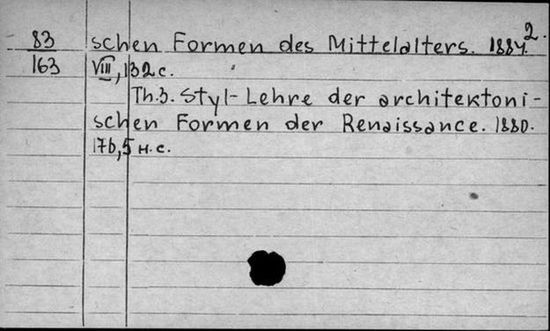 2.
83 schen Formen des Mittelalters. 1884.
163 VIII, 132 с.
Th.3. Styl-Lehre der architektoni-
schen Formen der Renaissance. 1880.
176, 5 н.с.